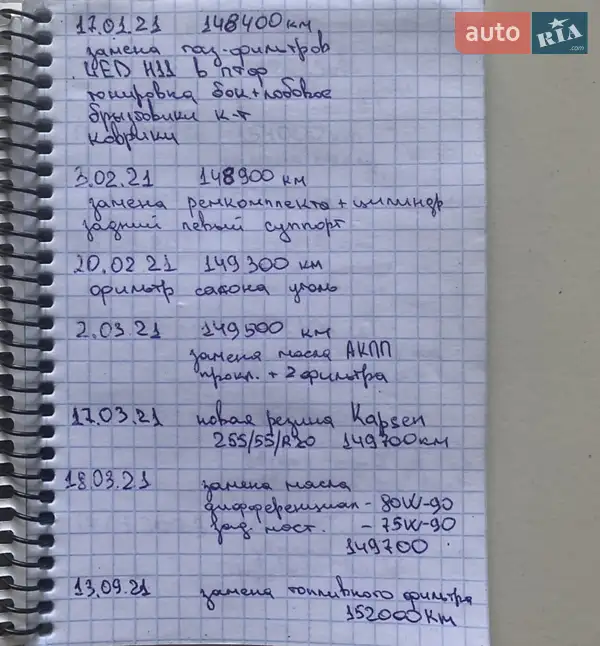 auto RIA .com
17.01.21 148400км
замена газ-фильтров
LED H11 в птф
тонировка бок+лобовое
брызговики к-т
коврики
3.02.21 148900 км
замена ремкомплекта + цилиндр
задний левый суппорт
20.02 21 149300 км
фильтр салона уголь
2.03.21 149500 км
замена масла АКПП
прокл. + 2 фильтра
17.03.21 новая резина Kapsen
255/55/R20 149700км
18.03.21 замена масла
дифференциал - 80W-90
зад. мост. - 75W-90
149700
13.09.21 замена топливного фильтра
152000км